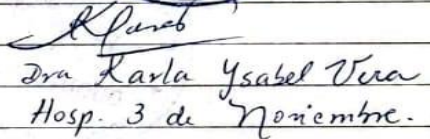 Dra Karla Ysabel Vera
Hosp. 3 de Noviembre.